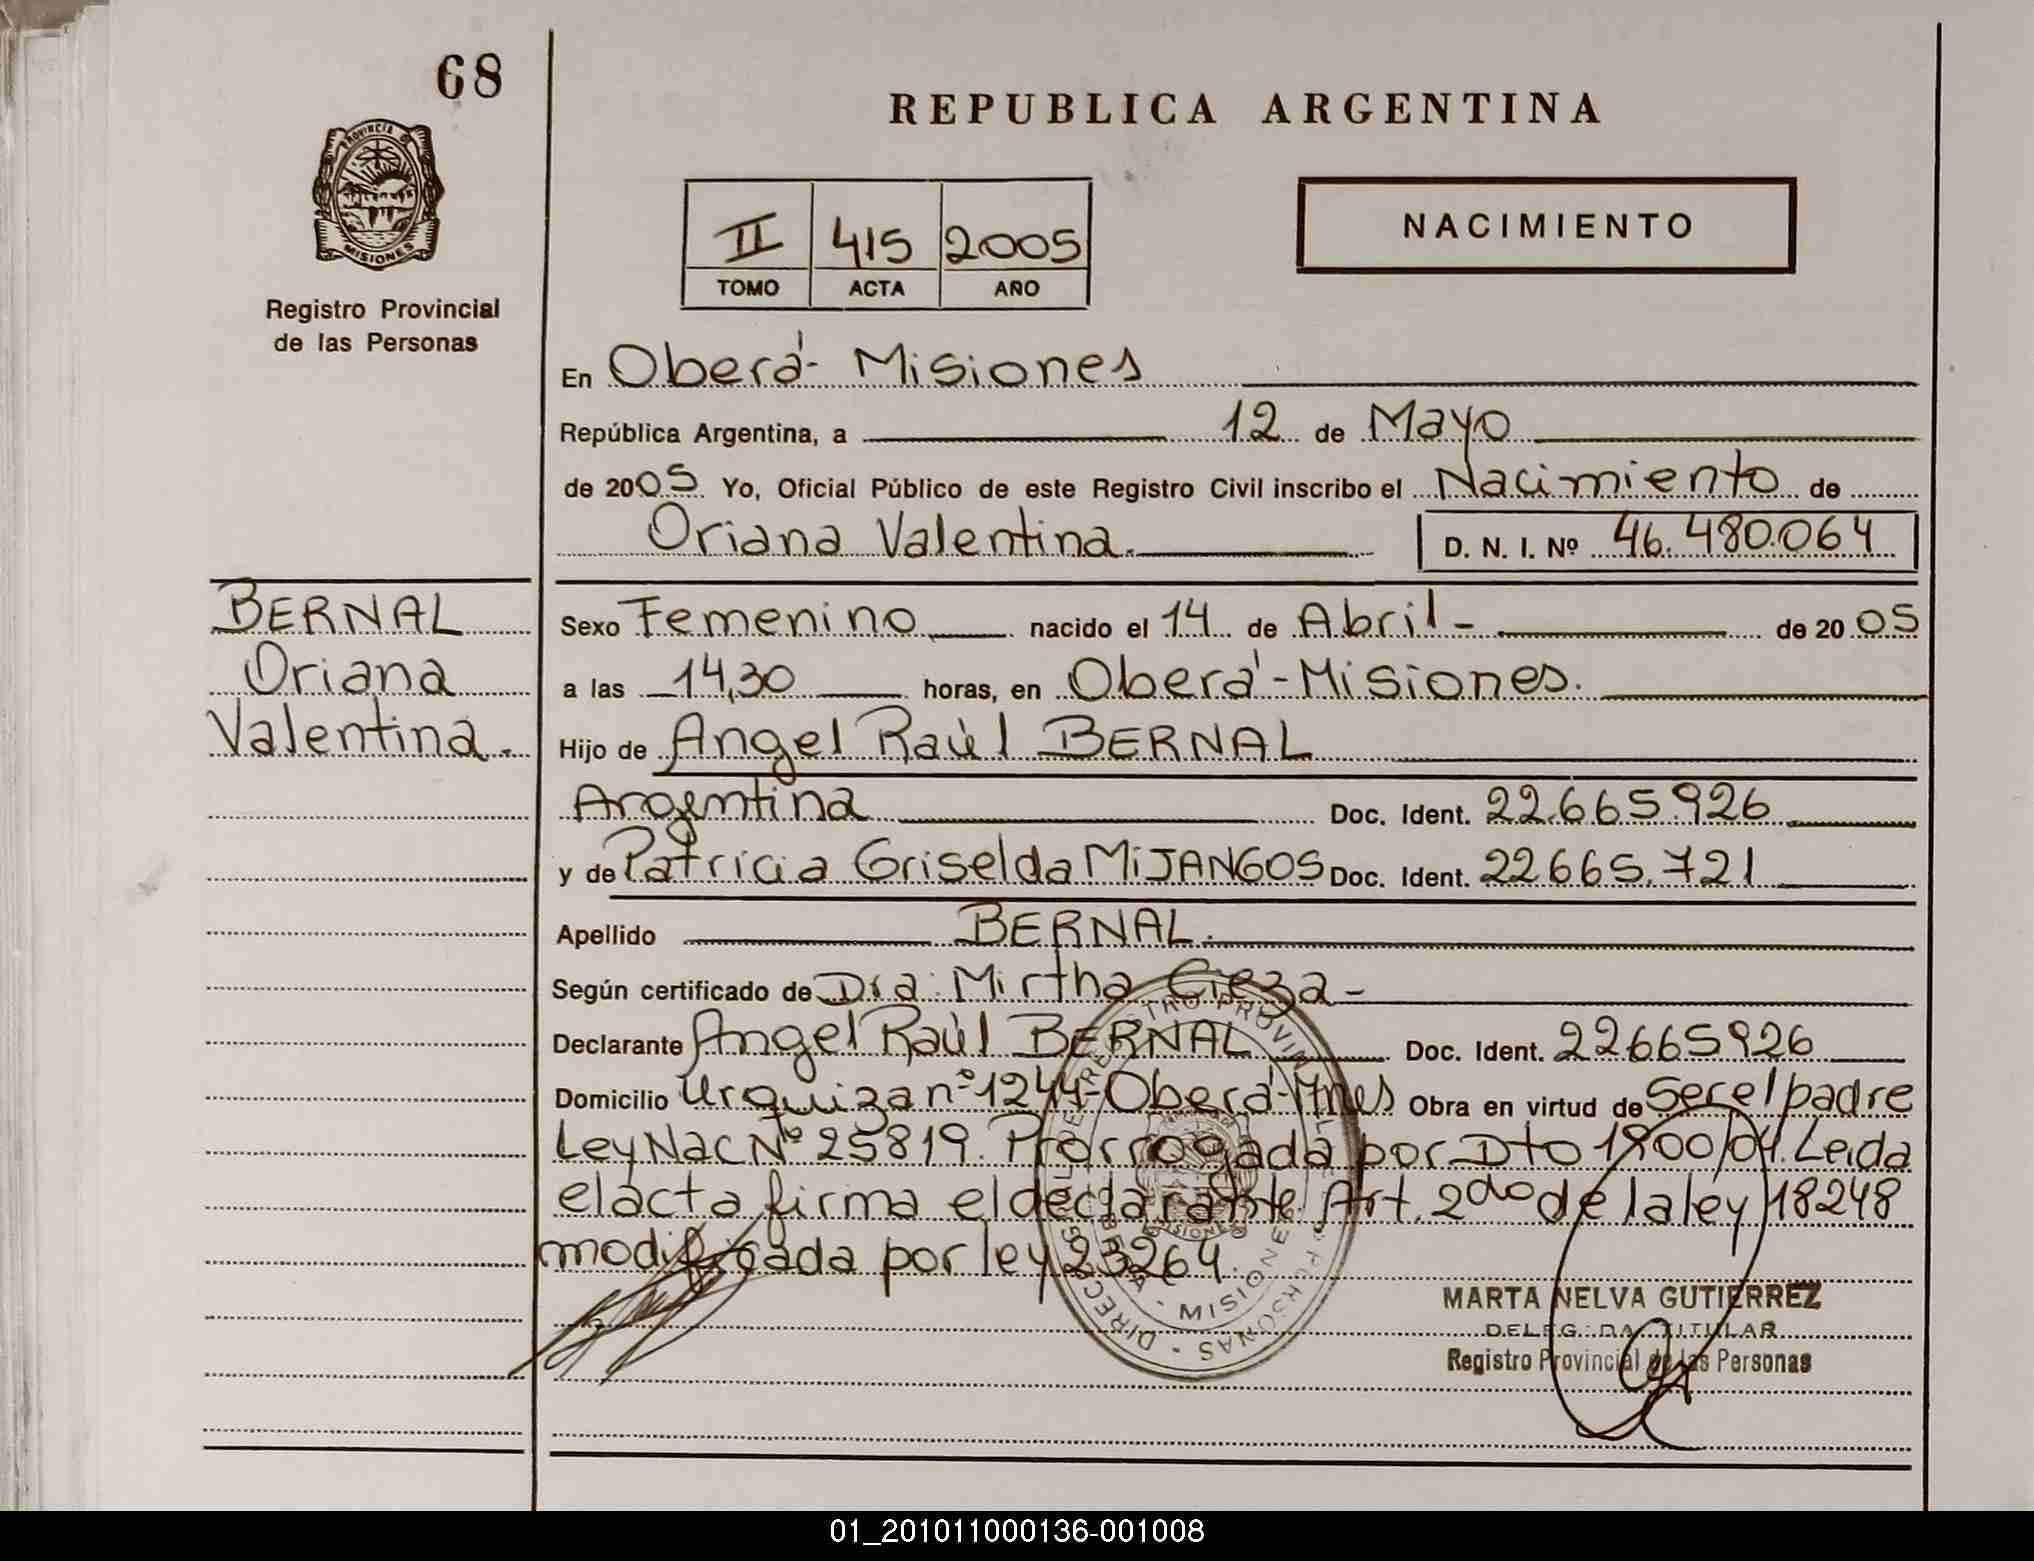 68
REPUBLICA ARGENTINA
PROVINCIA DE
MISIONES
Registro Provincial
de las Personas
II 415 2005
TOMO ACTA AÑO
NACIMIENTO
En Oberá - Misiones
República Argentina, a 12 de Mayo
de 2005 Yo, Oficial Público de este Registro Civil inscribo el Nacimiento de
Oriana Valentina. D. N. I. Nº 46.480.064
BERNAL
Oriana
Valentina.
Sexo Femenino nacido el 14 de Abril - de 2005
a las 14,30 horas, en Oberá - Misiones.
Hijo de Angel Raúl BERNAL
Argentina Doc. Ident. 22.665.926
y de Patricia Griselda MiJANGOS Doc. Ident. 22665.721
Apellido BERNAL.
Según certificado de Dra: Mirtha Cieza -
Declarante Angel Raúl BERNAL Doc. Ident. 22665926
Domicilio Urquiza nº 1244 - Oberá - Mnes Obra en virtud de Ser el padre
Ley Nac Nº 25819. Prorrogada por Dto 1900/04. Leida
el acta firma el declarante Art. 2do de la ley 18248
modificada por ley 23264.
MARTA NELVA GUTIERREZ
DELEGADA TITULAR
Registro Provincial de las Personas
01_201011000136-001008